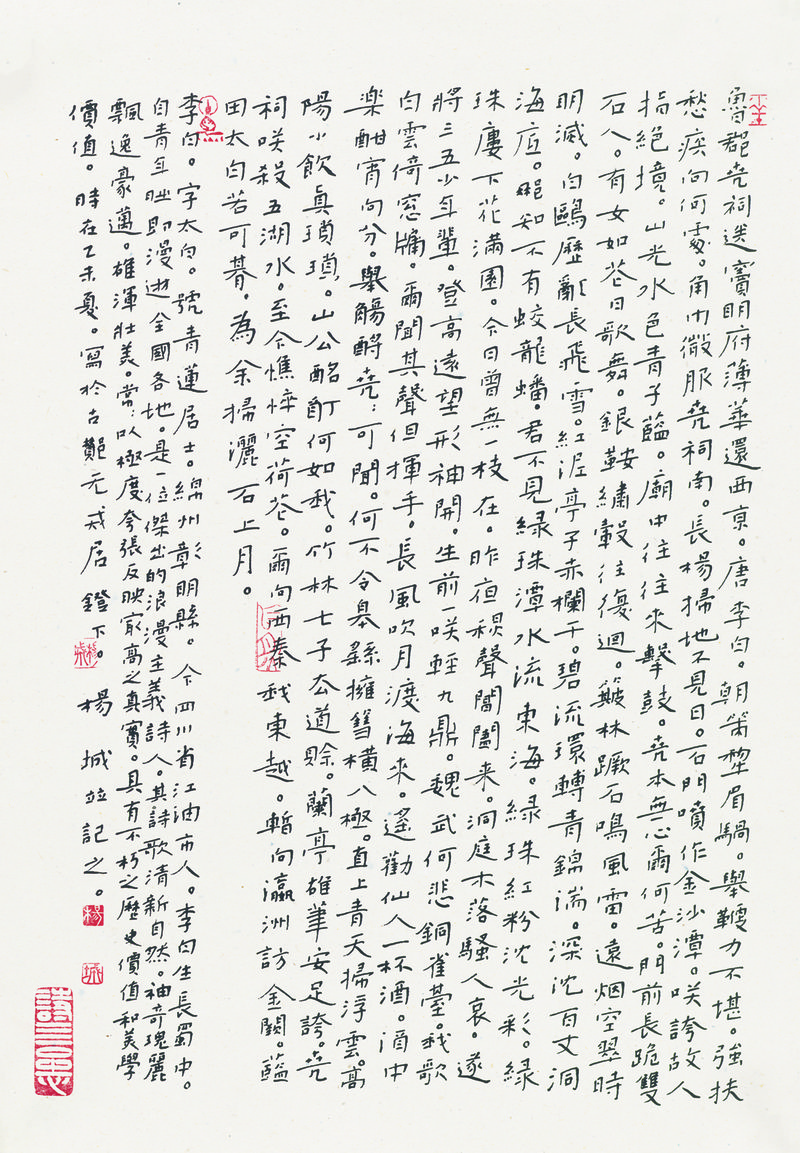 魯郡堯祠送竇明府薄華還西京。唐 李白。朝策犂眉騧。舉鞭力不堪。強扶
愁疾向何處。角巾微服堯祠南。長楊掃地不見日。石門噴作金沙潭。咲誇故人
指絕境。山光水色青于藍。廟中往往來擊鼓。堯本無心爾何苦。門前長跪雙
石人。有女如花日歌舞。銀鞍繡轂往復迴。簸林蹶石鳴風雷。遠烟空翠時
明滅。白鷗歷亂長飛雪。紅泥亭子赤欄干。碧流環轉青錦湍。深沈百丈洞
海底。那知不有蛟龍蟠。君不見綠珠潭水流東海。綠珠紅粉沈光彩。綠
珠廔下花滿園。今日曾無一枝在。昨夜秋聲閶闔來。洞庭木落騷人哀。遂
將三五少年輩。登高遠望形神開。生前一咲輕九鼎。魏武何悲銅雀臺。我歌
白雲倚窓牖。爾聞其聲但揮手。長風吹月渡海來。遙勸仙人一杯酒。酒中
樂酣宵向分。舉觴酹堯堯可聞。何不令皋繇擁篲橫八極。直上青天掃浮雲。高
陽小飲真瑣瑣。山公酩酊何如我。竹林七子去道賒。蘭亭雄筆安足誇。堯
祠咲殺五湖水。至今憔悴空荷花。爾向西秦我東越。暫向瀛洲訪金闕。藍
田太白若可朞。為余掃灑石上月。
李白。字太白。號青蓮居士。綿州彰明縣。今四川省江油市人。李白生長蜀中。
自青年時即漫遊全國各地。是一位傑出的浪漫主義詩人。其詩歌清新自然。神奇瑰麗
飄逸豪邁。雄渾壯美。常常以極度夸張反映最高之真實。具有不朽之歷史價值和美學
價值。時在乙未夏。寫於古鄭元戎居鐙下。楊城並記之。
楊
城